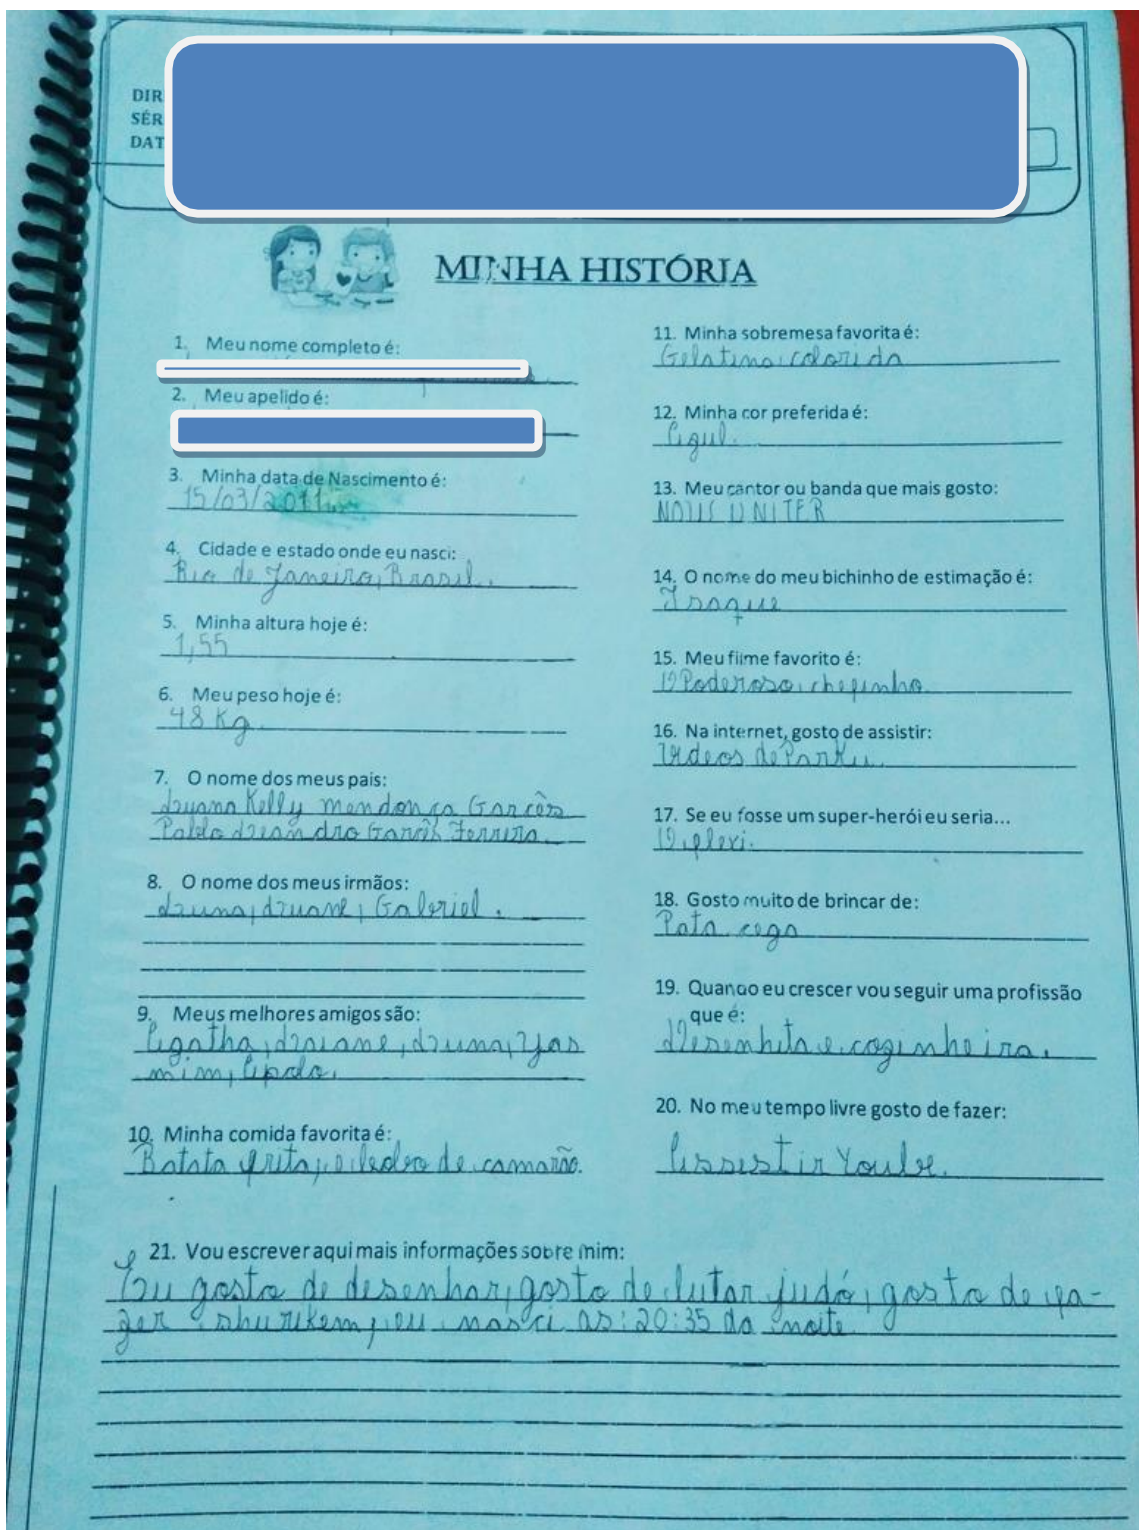 DIR
SÉR
DAT
MINHA HISTÓRIA
1. Meu nome completo é:
2. Meu apelido é:
3. Minha data de Nascimento é:
15/03/2011
4. Cidade e estado onde eu nasci:
Rio de Janeiro, Brasil.
5. Minha altura hoje é:
1,55
6. Meu peso hoje é:
48 Kg
7. O nome dos meus pais:
Luana Kelly mendonça Garcês
Pablo Leandro Garcês Ferreira.
8. O nome dos meus irmãos:
Luna, Luane, Gabriel.
9. Meus melhores amigos são:
Agatha, Laiane, Luna, Yas
mim,
10. Minha comida favorita é:
Batata frita, e de camarão.
11. Minha sobremesa favorita é:
Gelatina colorida
12. Minha cor preferida é:
Azul.
13. Meu cantor ou banda que mais gosto:
NOUS UNITER
14. O nome do meu bichinho de estimação é:
Isaque
15. Meu filme favorito é:
O Poderoso chefinho
16. Na internet, gosto de assistir:
Videos de Parku.
17. Se eu fosse um super-herói eu seria...
O
18. Gosto muito de brincar de:
Pata cega
19. Quando eu crescer vou seguir uma profissão
que é:
Desenhita e cozinheira.
20. No meu tempo livre gosto de fazer:
Assistir Yoube.
21. Vou escrever aqui mais informações sobre mim:
Eu gosto de desenhar, gosto de lutar judô, gosto de fa-
zer shurikem, eu nasci as:20:35 da noite